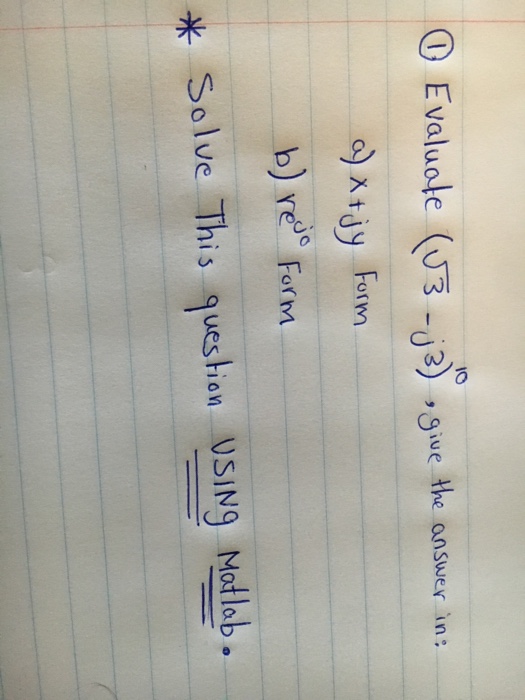 ① Evaluate (√3 - j3)¹⁰, give the answer in:
a) x + jy Form
b) re^jθ Form
* Solve This question USING Matlab.